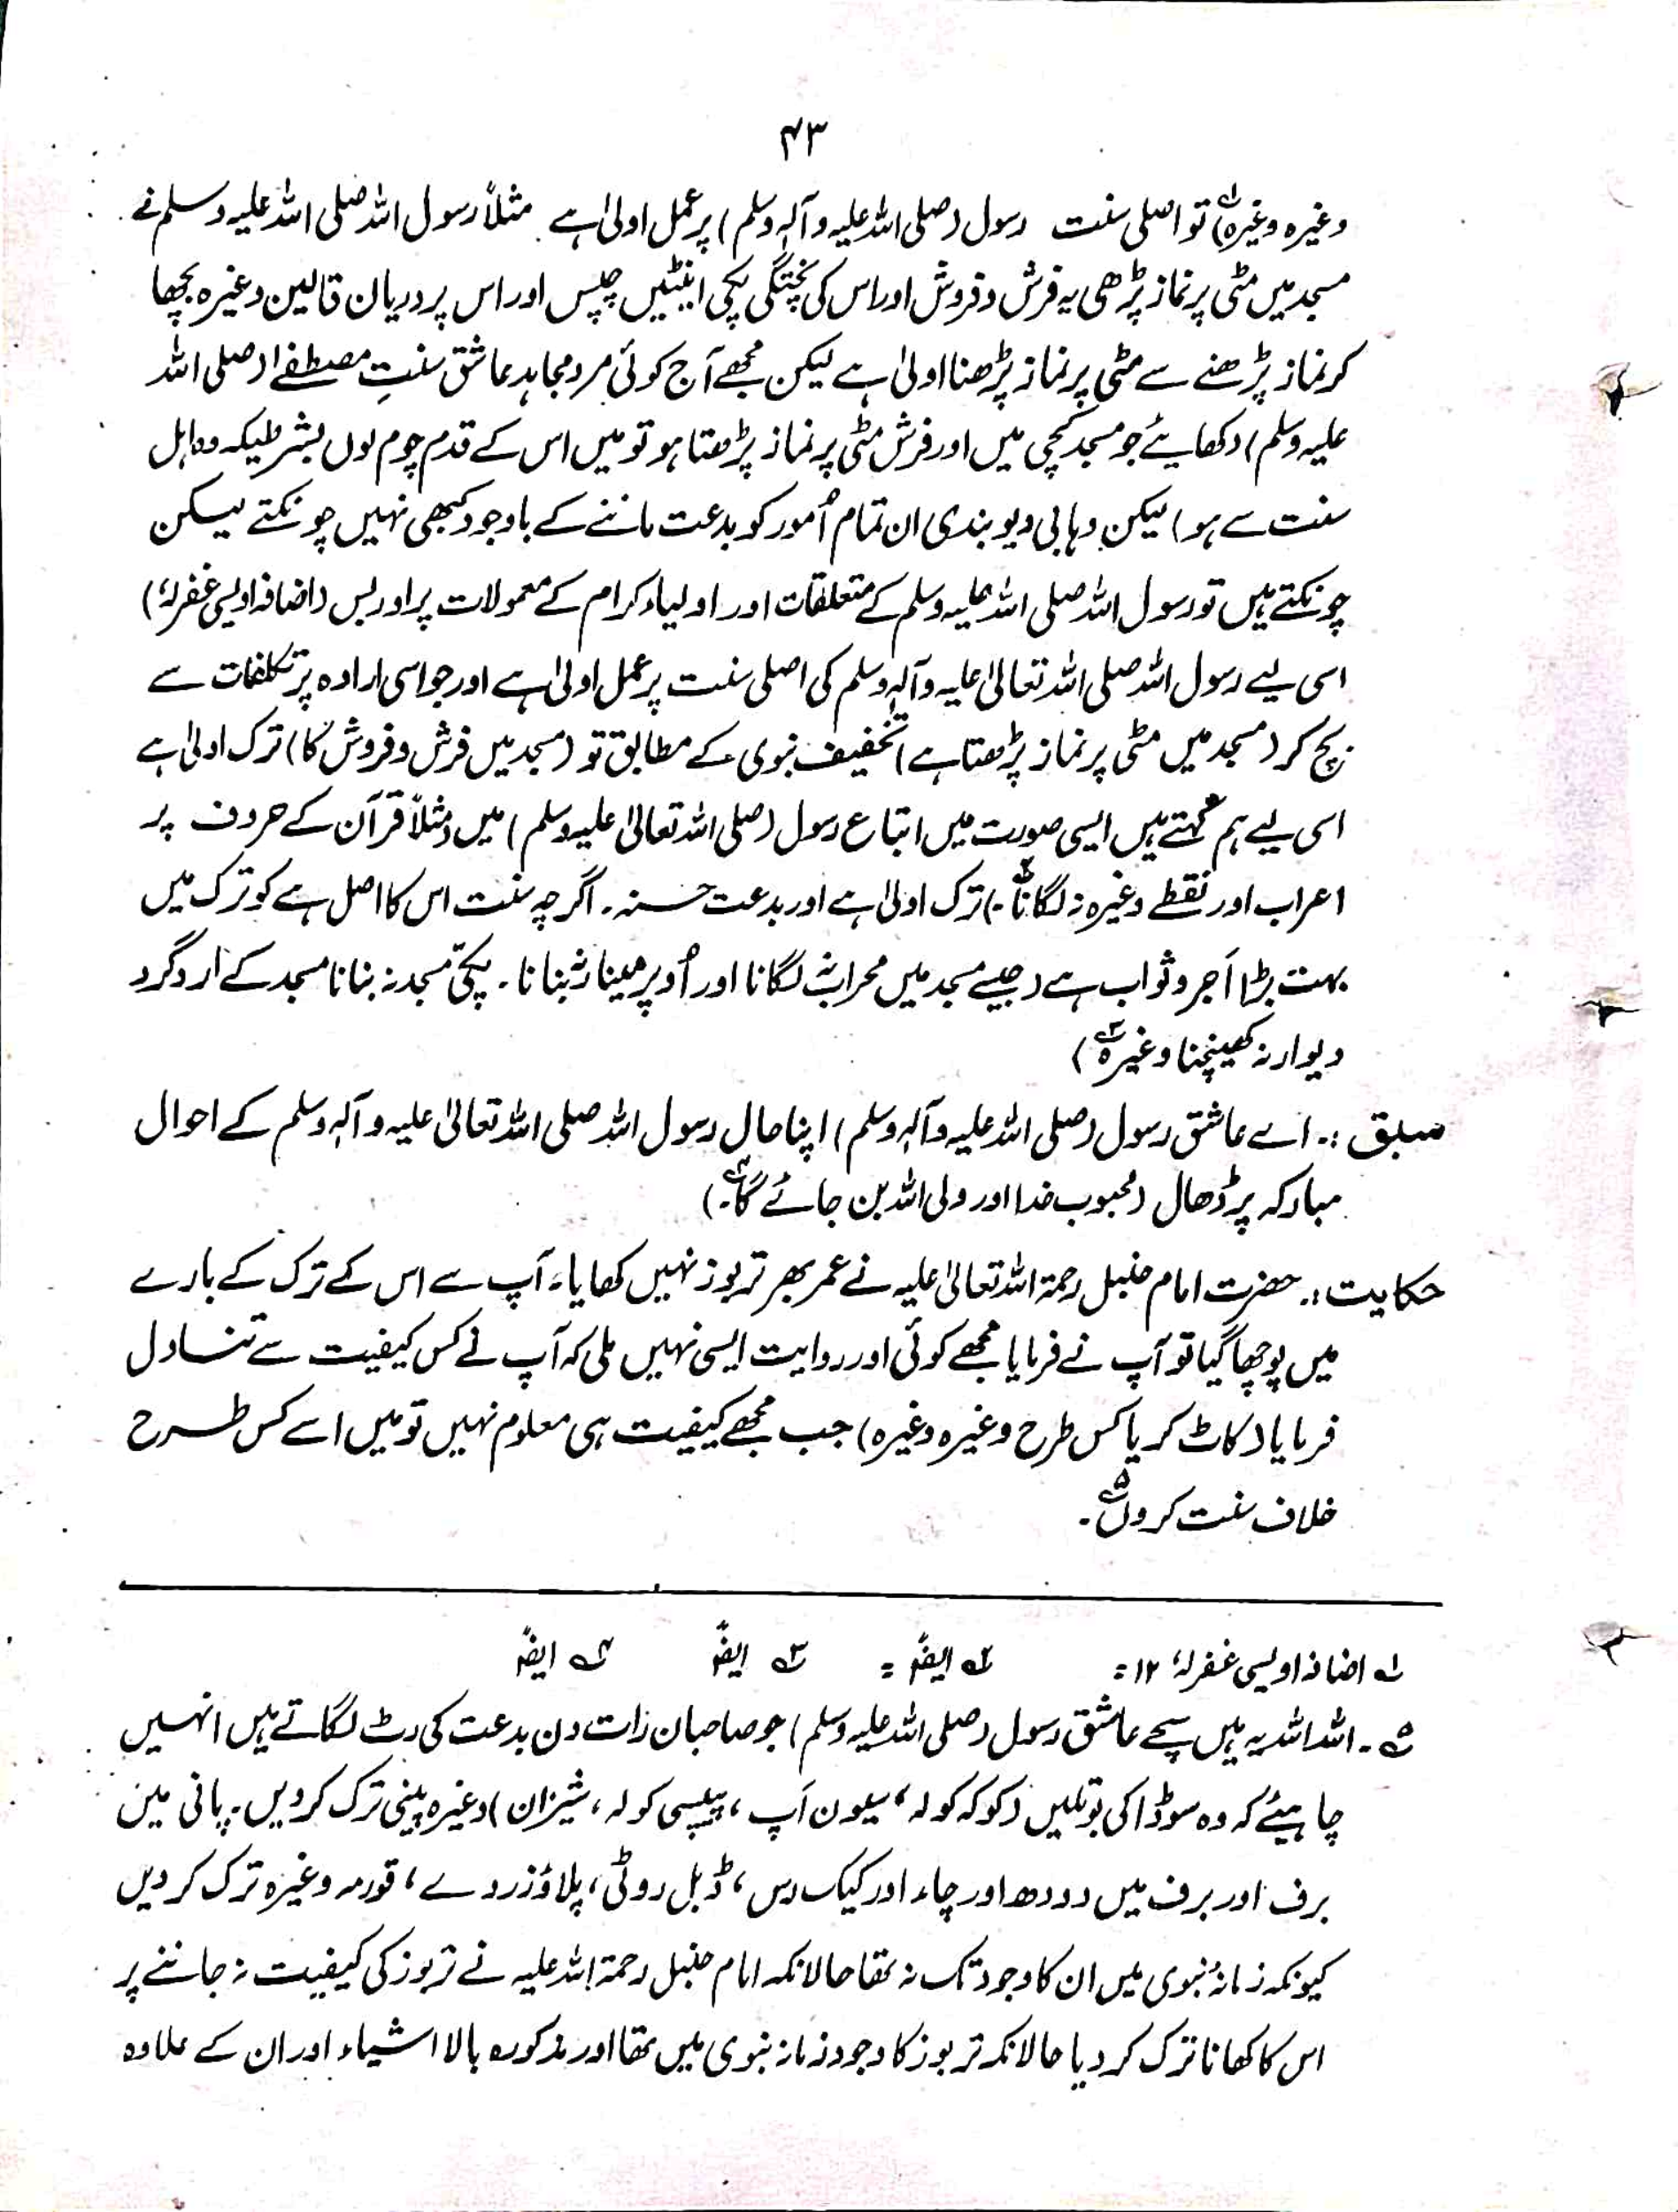 ۴۳
وغیرہ وغیرہ۱؎) تو اصلی سنت رسول (صلی اللہ علیہ وآلہٖ وسلم) پر عمل اولیٰ ہے۔ مثلاً رسول اللہ صلی اللہ علیہ وسلم نے
مسجد میں مٹی پر نماز پڑھی یہ فرش و فروش اور اس کی پختگی پکی اینٹیں چپس اور اس پر دریاں قالین وغیرہ بچھا
کر نماز پڑھنے سے مٹی پر نماز پڑھنا اولیٰ ہے لیکن مجھے آج کوئی مرد مجاہد عاشق سنتِ مصطفےٰ (صلی اللہ
علیہ وسلم) دکھایئے جو مسجد کچی میں اور فرش مٹی پر نماز پڑھتا ہو تو میں اس کے قدم چوم لوں بشرطیکہ وہ اہل
سنت سے ہو) لیکن وہابی دیوبندی ان تمام اُمور کو بدعت ماننے کے باوجود کبھی نہیں چونکتے لیکن
چونکتے ہیں تو رسول اللہ صلی اللہ علیہ وسلم کے متعلقات اور اولیاء کرام کے معمولات پر اور بس (اضافہ اویسی غفرلہٗ)
اسی لیے رسول اللہ صلی اللہ تعالیٰ علیہ وآلہٖ وسلم کی اصلی سنت پر عمل اولیٰ ہے اور جو اسی ارادہ پر تکلفات سے
بچ کر (مسجد میں مٹی پر نماز پڑھتا ہے) تخفیف نبوی کے مطابق تو (مسجد میں فرش و فروش کا) ترک اولیٰ ہے
اسی لیے ہم کہتے ہیں ایسی صورت میں اتباع رسول (صلی اللہ تعالیٰ علیہ وسلم) میں (مثلاً قرآن کے حروف پر
اعراب اور نقطے وغیرہ نہ لگانا۲؎۔) ترک اولیٰ ہے اور بدعت حسنہ۔ اگرچہ سنت اس کا اصل ہے کو ترک میں
بہت بڑا اجر و ثواب ہے (جیسے مسجد میں محراب نہ لگانا اور اُوپر مینار نہ بنانا۔ پکی مسجد نہ بنانا مسجد کے ارد گرد
دیوار نہ کھینچنا وغیرہ۳؎)
سبق :۔ اے عاشق رسول (صلی اللہ علیہ وآلہٖ وسلم) اپنا حال رسول اللہ صلی اللہ تعالیٰ علیہ وآلہٖ وسلم کے احوال
مبارکہ پر ڈھال (محبوب خدا اور ولی اللہ بن جائے گا۴؎۔)
حکایت :۔ حضرت امام حنبل رحمۃ اللہ تعالیٰ علیہ نے عمر بھر تربوز نہیں کھایا۔ آپ سے اس کے ترک کے بارے
میں پوچھا گیا تو آپ نے فرمایا مجھے کوئی اور روایت ایسی نہیں ملی کہ آپ نے کس کیفیت سے تناول
فرمایا (کاٹ کر یا کس طرح وغیرہ وغیرہ) جب مجھے کیفیت ہی معلوم نہیں تو میں اسے کس طرح
خلاف سنت کروں۵؎۔
۱؎ اضافہ اویسی غفرلہٗ ۱۲ = ۲؎ ایضاً = ۳؎ ایضاً ۴؎ ایضاً
۵؎۔ اللہ اللہ یہ ہیں سچے عاشق رسول (صلی اللہ علیہ وسلم) جو صاحبان رات دن بدعت کی رٹ لگاتے ہیں انہیں
چاہیئے کہ وہ سوڈا کی بوتلیں (کوکہ کولہ، سیون آپ، پیپسی کولہ، شیزان) وغیرہ پینی ترک کردیں۔ پانی میں
برف اور برف میں دودھ اور چاء اور کیک رس، ڈبل روٹی، پلاؤ زردے، قورمہ وغیرہ ترک کر دیں
کیونکہ زمانۂ نبوی میں ان کا وجود تک نہ تھا حالانکہ امام حنبل رحمۃ اللہ علیہ نے تربوز کی کیفیت نہ جاننے پر
اس کا کھانا ترک کر دیا حالانکہ تربوز کا وجود زمانہ نبوی میں تھا اور مذکورہ بالا اشیاء اور ان کے علاوہ